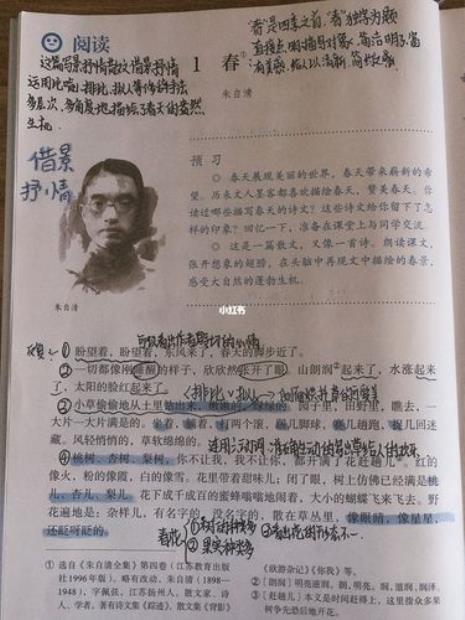 阅读
"春"是四季之首,"春"独字为题
直接点明描写对象,简洁明了,富
有美感,给人以清新、简炼感
这篇写景抒情散文 借景抒情
运用比喻、排比、拟人等修辞手法
多层次、多角度地描绘了春天的盎然
生机
1 春①
朱自清
借景
抒情
朱自清
预 习
◎ 春天展现美丽的世界,春天带来崭新的希
望。历来文人墨客都喜欢描绘春天,赞美春天。你
读过哪些描写春天的诗文?这些诗文给你留下了怎
样的印象?回忆一下,准备在课堂上与同学交流。
◎ 这是一篇散文,又像一首诗。朗读课文,
张开想象的翅膀,在头脑中再现文中描绘的春景,
感受大自然的蓬勃生机。
小红书
① 盼望着,盼望着,东风来了,春天的脚步近了。
② 一切都像刚睡醒的样子,欣欣然张开了眼。山朗润②起来了,水涨起来
了,太阳的脸红起来了。
〈排比、拟人〉
③ 小草偷偷地从土里钻出来,嫩嫩的,绿绿的。园子里,田野里,瞧去,一
大片一大片满是的。坐着,躺着,打两个滚,踢几脚球,赛几趟跑,捉几回迷
藏。风轻悄悄的,草软绵绵的。
④ 桃树、杏树、梨树,你不让我,我不让你,都开满了花赶趟儿③。红的
像火,粉的像霞,白的像雪。花里带着甜味儿;闭了眼,树上仿佛已经满是桃
儿、杏儿、梨儿。花下成千成百的蜜蜂嗡嗡地闹着,大小的蝴蝶飞来飞去。野
花遍地是:杂样儿,有名字的,没名字的,散在草丛里,像眼睛,像星星,
还眨呀眨的。
春花
② 果实种类多
① 选自《朱自清全集》第四卷(江苏教育出版
社1996年版)。略有改动。朱自清(1898—
1948),字佩弦,江苏扬州人,散文家、诗
人、学者。著有诗文集《踪迹》、散文集《背影》
《欧游杂记》《你我》等。
②〔朗润〕明亮滋润。朗,明亮。润,滋润,润泽。
③〔赶趟儿〕本义是时间赶得上,这里指众多果
树争先恐后地开花。